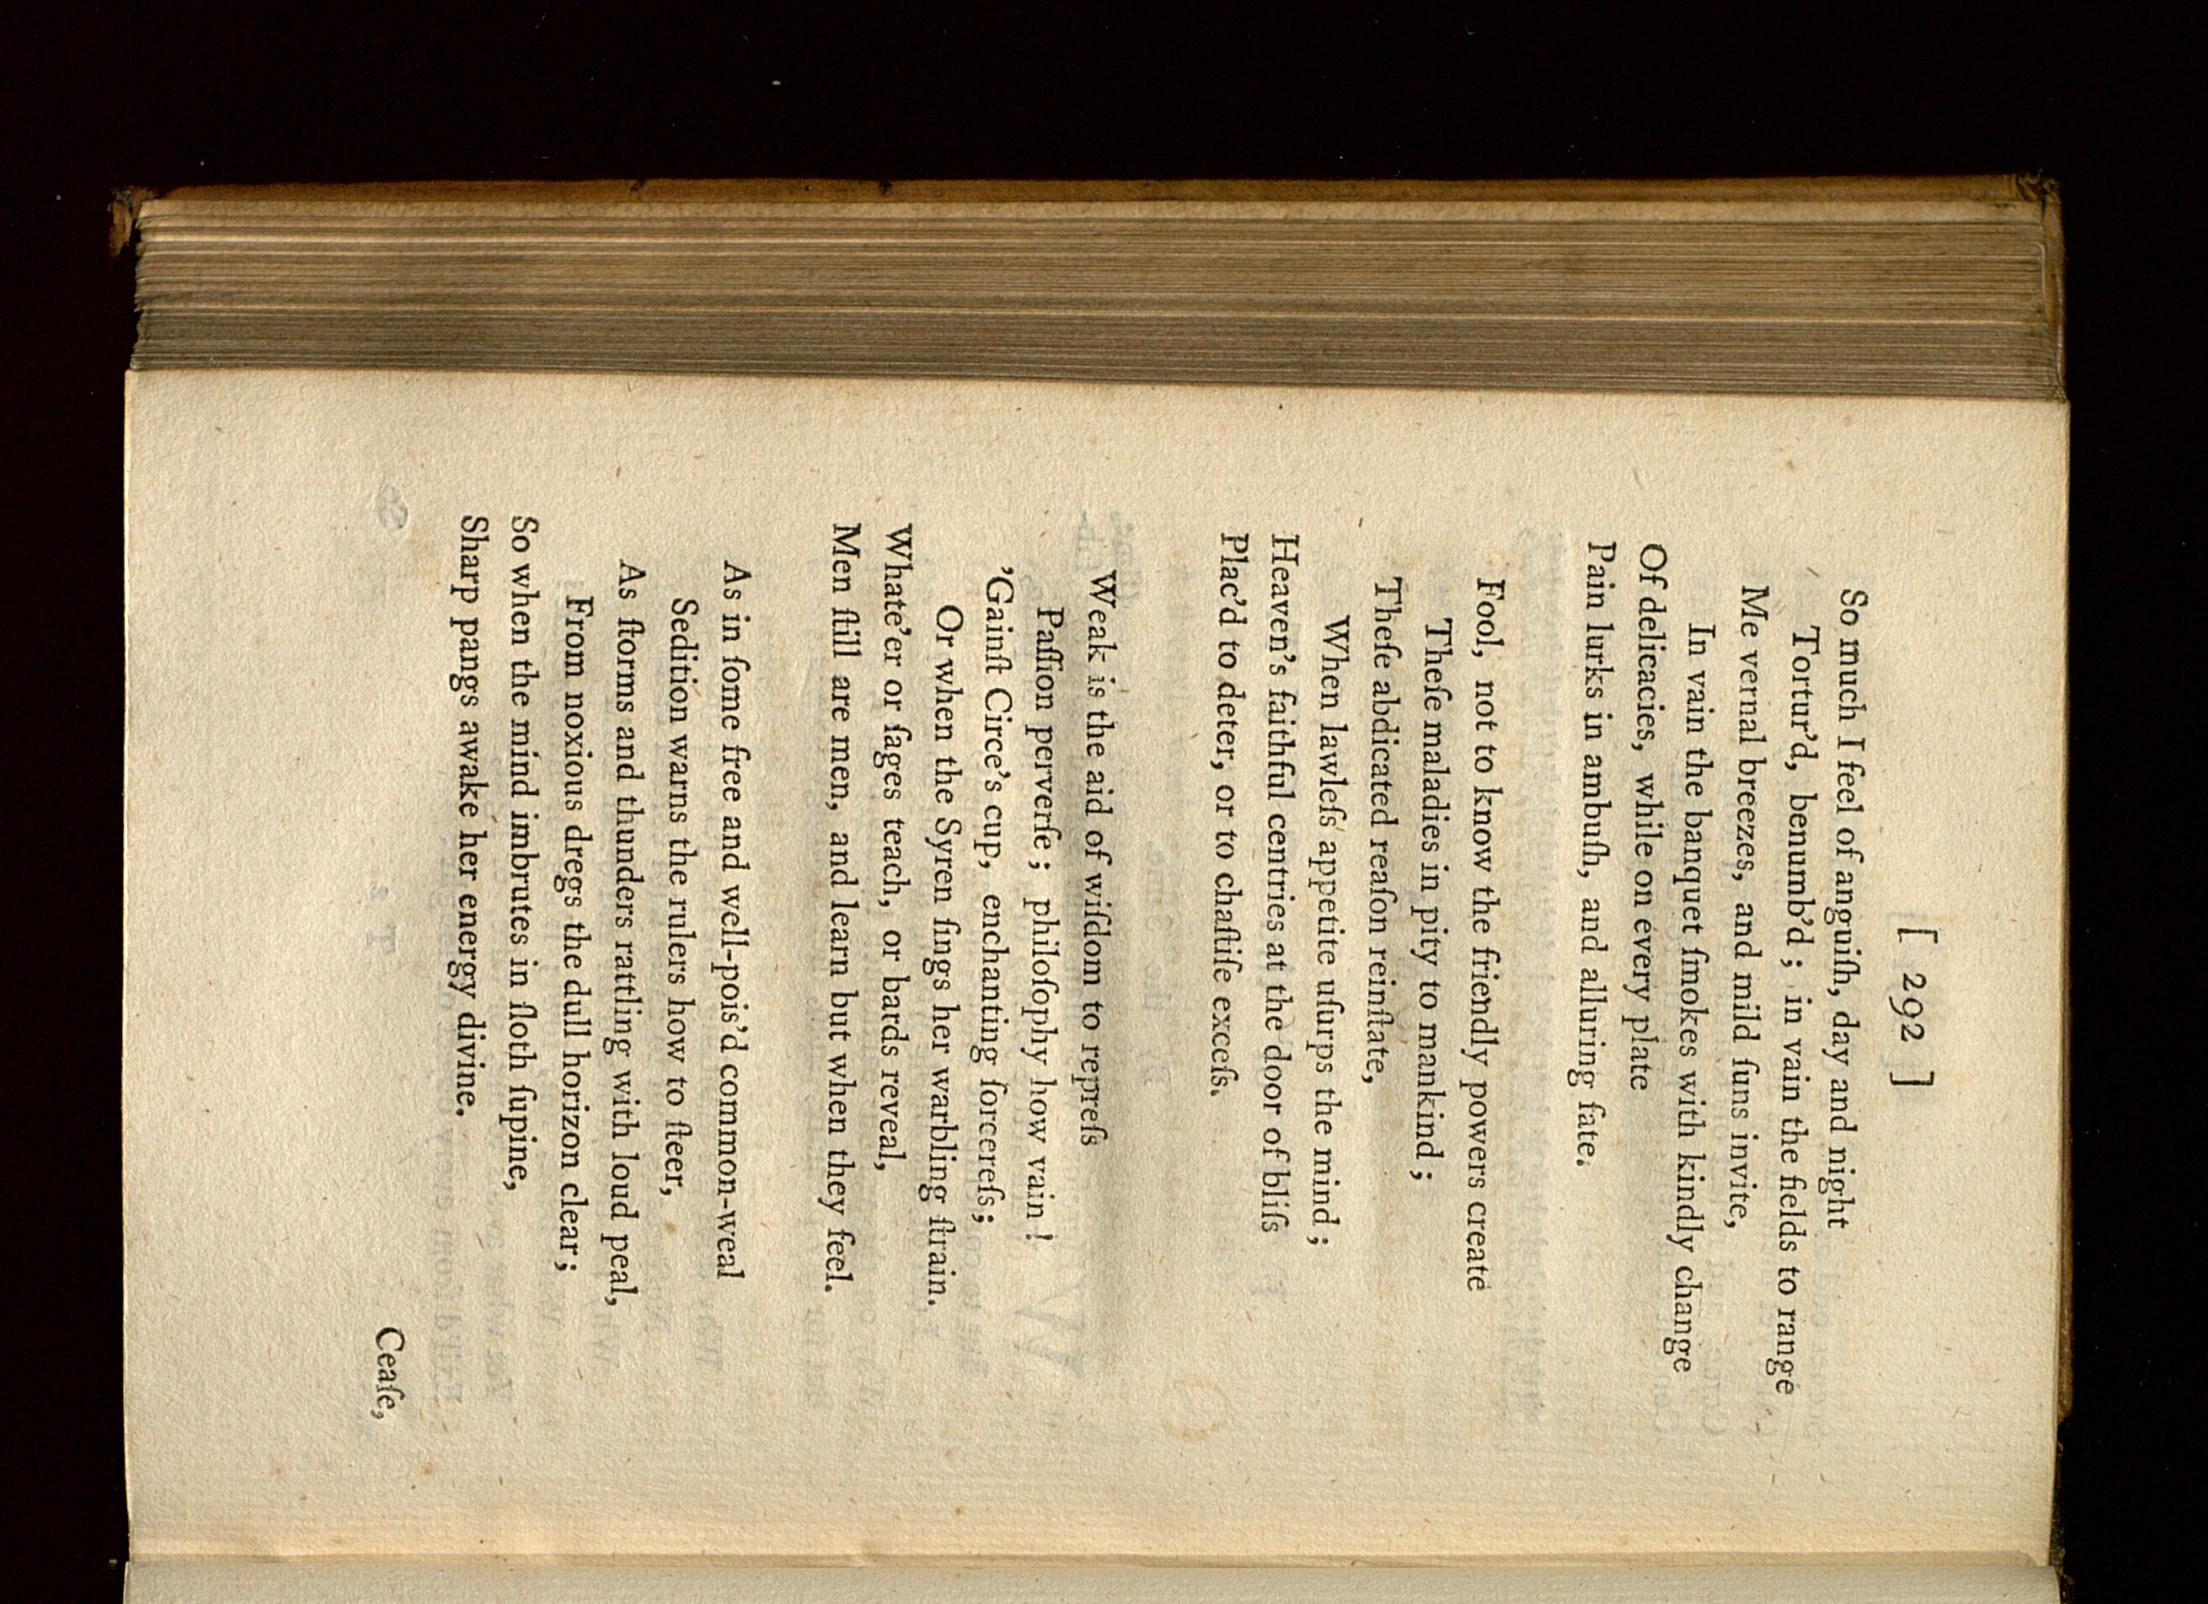 [ 292 ]
So much I feel of anguiſh, day and night
Tortur'd, benumb'd ; in vain the fields to range
Me vernal breezes, and mild ſuns invite,
In vain the banquet ſmokes with kindly change
Of delicacies, while on every plate
Pain lurks in ambuſh, and alluring fate.
Fool, not to know the friendly powers create
Theſe maladies in pity to mankind ;
Theſe abdicated reaſon reinſtate,
When lawleſs appetite uſurps the mind ;
Heaven's faithful centries at the door of bliſs
Plac'd to deter, or to chaſtiſe exceſs.
Weak is the aid of wiſdom to repreſs
Paſſion perverſe ; philoſophy how vain !
'Gainſt Circe's cup, enchanting ſorcereſs ;
Or when the Syren ſings her warbling ſtrain.
Whate'er or ſages teach, or bards reveal,
Men ſtill are men, and learn but when they feel.
As in ſome free and well-pois'd common-weal
Sedition warns the rulers how to ſteer,
As ſtorms and thunders rattling with loud peal,
From noxious dregs the dull horizon clear ;
So when the mind imbrutes in ſloth ſupine,
Sharp pangs awake her energy divine.
Ceaſe,